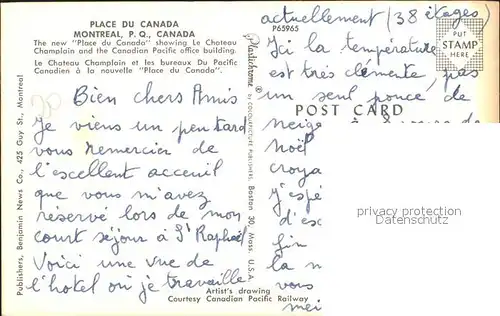 PLACE DU CANADA
MONTREAL, P. Q., CANADA
The new "Place du Canada" showing Le Chateau
Champlain and the Canadian Pacific office building.
Le Chateau Champlain et les bureaux Du Pacific
Canadien à la nouvelle "Place du Canada".
Bien chers Amis
Je viens un peu tard
vous remercier de
l'excellent acceuil
que vous m'avez
réservé lors de mon
court séjour à St Raphaël
Voici une vue de
l'hotel où je travaille
Artist's drawing
Courtesy Canadian Pacific Railway
Publishers, Benjamin News Co., 425 Guy St., Montreal
Plastichrome ® BY COLOURPICTURE PUBLISHERS, Boston 30, Mass., U.S.A.
P65965
PUT
STAMP
HERE
POST CARD
actuellement (38 étages)
Ici la température
est très clémente, pas
un seul pouce de
neige
Noël
croya
J'espè
d'es
fin
la n
vous
mei
privacy protection